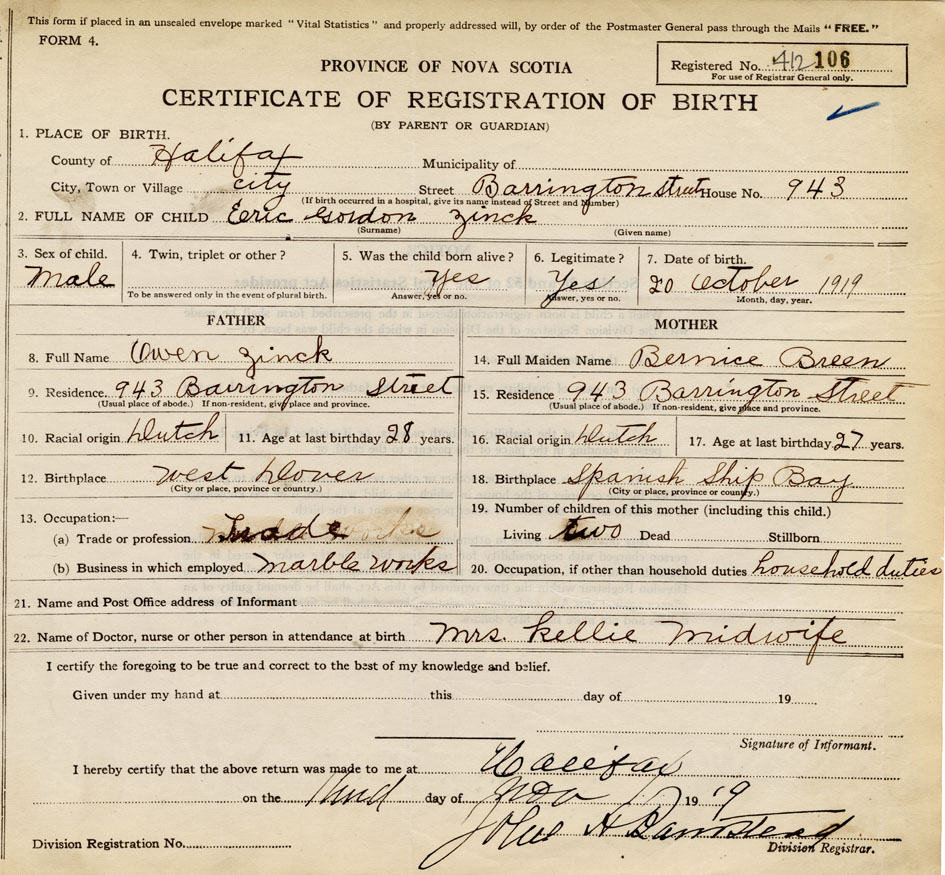 This form if placed in an unsealed envelope marked "Vital Statistics" and properly addressed will, by order of the Postmaster General pass through the Mails "FREE."
FORM 4.
Registered No. 412 106
For use of Registrar General only.
PROVINCE OF NOVA SCOTIA
CERTIFICATE OF REGISTRATION OF BIRTH
(BY PARENT OR GUARDIAN)
1. PLACE OF BIRTH.
County of Halifax Municipality of
City, Town or Village city Street Barrington Street House No. 943
(If birth occurred in a hospital, give its name instead of Street and Number)
2. FULL NAME OF CHILD Eeric Gordon Zinck
(Surname) (Given name)
3. Sex of child. 4. Twin, triplet or other? 5. Was the child born alive? 6. Legitimate? 7. Date of birth.
Male Yes Yes 20 October 1919
To be answered only in the event of plural birth. Answer, yes or no. Answer, yes or no. Month, day, year.
FATHER
8. Full Name Owen Zinck
9. Residence. 943 Barrington Street
(Usual place of abode.) If non-resident, give place and province.
10. Racial origin Dutch 11. Age at last birthday 28 years.
12. Birthplace West Dover
(City or place, province or country.)
13. Occupation:—
(a) Trade or profession Trade
(b) Business in which employed Marble Works
MOTHER
14. Full Maiden Name Bernice Breen
15. Residence 943 Barrington Street
(Usual place of abode.) If non-resident, give place and province.
16. Racial origin Dutch 17. Age at last birthday 27 years.
18. Birthplace Spanish Ship Bay
(City or place, province or country.)
19. Number of children of this mother (including this child.)
Living two Dead Stillborn
20. Occupation, if other than household duties household duties
21. Name and Post Office address of Informant
22. Name of Doctor, nurse or other person in attendance at birth Mrs. Kellie Midwife
I certify the foregoing to be true and correct to the best of my knowledge and belief.
Given under my hand at this day of 19
Signature of Informant.
I hereby certify that the above return was made to me at Halifax
on the Third day of Nov 19 19
John A Barnstead
Division Registration No. Division Registrar.